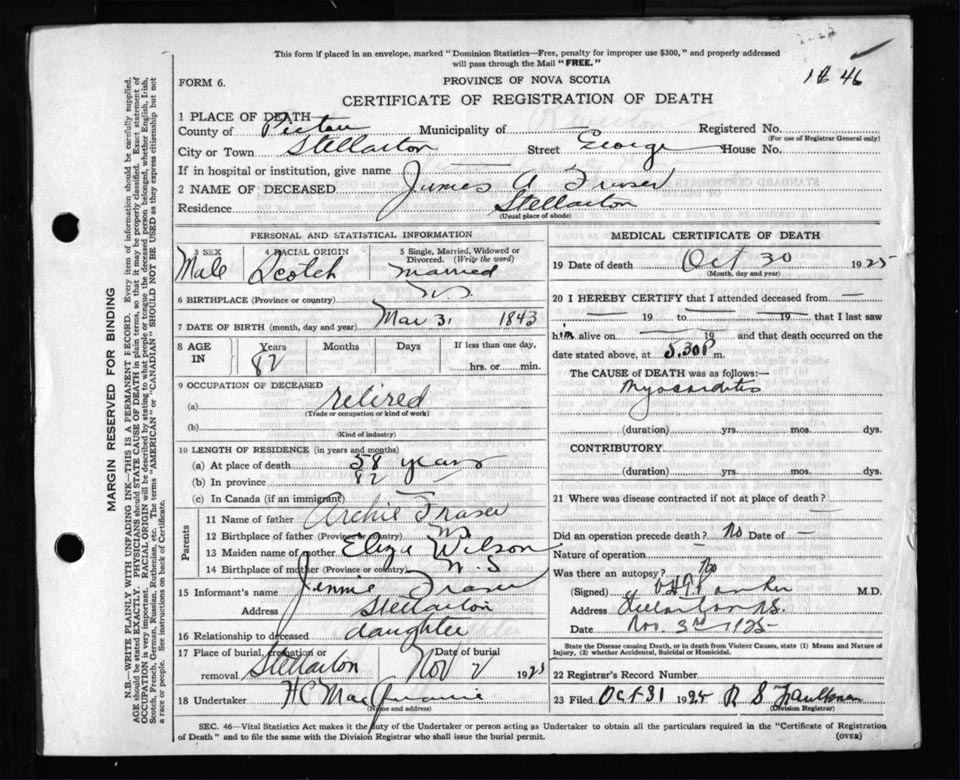 This form if placed in an envelope, marked "Dominion Statistics—Free, penalty for improper use $300," and properly addressed
will pass through the Mail "FREE."
FORM 6.
PROVINCE OF NOVA SCOTIA
CERTIFICATE OF REGISTRATION OF DEATH
1 PLACE OF DEATH
County of Pictou Municipality of Registered No.
(For use of Registrar General only)
City or Town Stellarton Street George House No.
If in hospital or institution, give name
2 NAME OF DECEASED James A Fraser
Residence Stellarton
(Usual place of abode)
PERSONAL AND STATISTICAL INFORMATION
3 SEX Male
4 RACIAL ORIGIN Scotch
5 Single, Married, Widowed or Divorced. (Write the word) Married
6 BIRTHPLACE (Province or country) N.S.
7 DATE OF BIRTH (month, day and year) Mar 31 1843
8 AGE IN Years 82 Months Days If less than one day, hrs. or min.
9 OCCUPATION OF DECEASED
(a) retired
(Trade or occupation or kind of work)
(b)
(Kind of industry)
10 LENGTH OF RESIDENCE (in years and months)
(a) At place of death 58 years
(b) In province 82
(c) In Canada (if an immigrant)
Parents
11 Name of father Archie Fraser
12 Birthplace of father (Province or country) N.S.
13 Maiden name of mother Eliza Wilson
14 Birthplace of mother (Province or country) N.S
15 Informant's name Jennie Fraser
Address Stellarton
16 Relationship to deceased daughter
17 Place of burial, cremation or removal Stellarton Date of burial Nov 2 1925
18 Undertaker H C Mac
(Name and address)
MEDICAL CERTIFICATE OF DEATH
19 Date of death Oct 30 1925
(Month, day and year)
20 I HEREBY CERTIFY that I attended deceased from —
— 19 to — 19 — that I last saw
him alive on — 19 and that death occurred on the
date stated above, at 5.30 P m.
The CAUSE OF DEATH was as follows:—
Myocarditis
(duration) yrs. mos. dys.
CONTRIBUTORY
(duration) yrs. mos. dys.
21 Where was disease contracted if not at place of death?
Did an operation precede death? No Date of —
Nature of operation
Was there an autopsy? No
(Signed) M.D.
Address Stellarton N.S.
Date Nov. 3rd 1925
State the Disease causing Death, or in death from Violent Causes, state (1) Means and Nature of
Injury, (2) whether Accidental, Suicidal or Homicidal.
22 Registrar's Record Number
23 Filed Oct 31 1925 R S Faulkner
(Division Registrar)
SEC. 46—Vital Statistics Act makes it the duty of the Undertaker or person acting as Undertaker to obtain all the particulars required in the "Certificate of Registration
of Death" and to file the same with the Division Registrar who shall issue the burial permit.
(OVER)
MARGIN RESERVED FOR BINDING
N.B.—WRITE PLAINLY WITH UNFADING INK—THIS IS A PERMANENT RECORD. Every item of information should be carefully supplied.
AGE should be stated EXACTLY. PHYSICIANS should STATE CAUSE OF DEATH in plain terms, so that it may be properly classified. Exact statement of
OCCUPATION is very important. RACIAL ORIGIN will be described by stating to what people or tongue the deceased person belonged, whether English, Irish,
Scotch, French, German, Russian, Ruthenian, etc. The terms "AMERICAN" or "CANADIAN" SHOULD NOT BE USED as they express citizenship but not
a race or people. See instructions on back of Certificate.